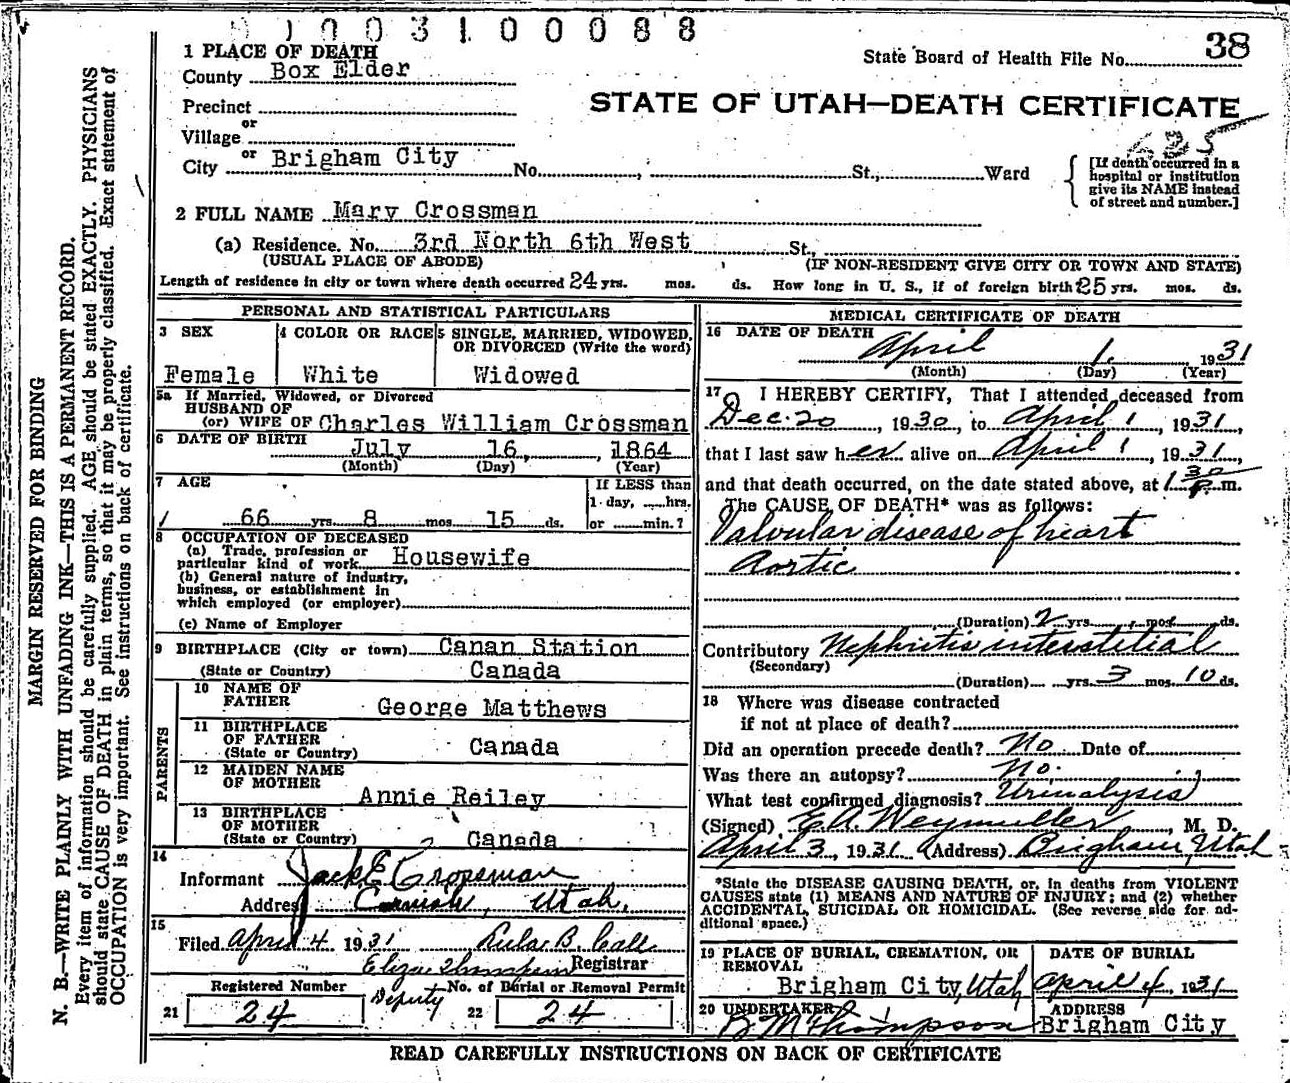 1003100088
State Board of Health File No. 38
1 PLACE OF DEATH
County Box Elder
STATE OF UTAH—DEATH CERTIFICATE
Precinct
or
Village
or
City Brigham City No. , St., Ward
[If death occurred in a
hospital or institution
give its NAME instead
of street and number.]
2 FULL NAME Mary Crossman
(a) Residence. No. 3rd North 6th West St.,
(USUAL PLACE OF ABODE) (IF NON-RESIDENT GIVE CITY OR TOWN AND STATE)
Length of residence in city or town where death occurred 24 yrs. mos. ds. How long in U. S., if of foreign birth 25 yrs. mos. ds.
PERSONAL AND STATISTICAL PARTICULARS
3 SEX
Female
4 COLOR OR RACE
White
5 SINGLE, MARRIED, WIDOWED,
OR DIVORCED (Write the word)
Widowed
5a If Married, Widowed, or Divorced
HUSBAND OF
(or) WIFE OF Charles William Crossman
6 DATE OF BIRTH July 16, 1864
(Month) (Day) (Year)
7 AGE
66 yrs. 8 mos. 15 ds.
If LESS than
1 day, hrs.
or min.?
8 OCCUPATION OF DECEASED
(a) Trade, profession or
particular kind of work Housewife
(b) General nature of industry,
business, or establishment in
which employed (or employer)
(c) Name of Employer
9 BIRTHPLACE (City or town) Canan Station
(State or Country) Canada
PARENTS
10 NAME OF
FATHER George Matthews
11 BIRTHPLACE
OF FATHER
(State or Country) Canada
12 MAIDEN NAME
OF MOTHER
Annie Reiley
13 BIRTHPLACE
OF MOTHER
(State or Country) Canada
14
Informant Jack E Crossman
Address Utah.
15
Filed April 4 1931 B. Call
Eliza Thompson Registrar
Deputy
Registered Number
21 24
No. of Burial or Removal Permit
22 24
MEDICAL CERTIFICATE OF DEATH
16 DATE OF DEATH
April 1. 1931
(Month) (Day) (Year)
17 I HEREBY CERTIFY, That I attended deceased from
Dec. 20, 1930, to April 1, 1931,
that I last saw her alive on April 1, 1931,
and that death occurred, on the date stated above, at 1 30 P. m.
The CAUSE OF DEATH* was as follows:
Valvular disease of heart
Aortic
(Duration) 2 yrs. mos. ds.
Contributory Nephritis interstitial
(Secondary)
(Duration) yrs. 3 mos. 10 ds.
18 Where was disease contracted
if not at place of death?
Did an operation precede death? No Date of
Was there an autopsy? No.
What test confirmed diagnosis? Urinalysis
(Signed) E.A. Weymuller, M. D.
April 3, 1931 (Address) Brigham, Utah
*State the DISEASE CAUSING DEATH, or, in deaths from VIOLENT
CAUSES state (1) MEANS AND NATURE OF INJURY; and (2) whether
ACCIDENTAL, SUICIDAL OR HOMICIDAL. (See reverse side for ad-
ditional space.)
19 PLACE OF BURIAL, CREMATION, OR
REMOVAL
Brigham City, Utah
DATE OF BURIAL
April 4, 1931
20 UNDERTAKER
Thompson
ADDRESS
Brigham City
READ CAREFULLY INSTRUCTIONS ON BACK OF CERTIFICATE
MARGIN RESERVED FOR BINDING
N. B.—WRITE PLAINLY WITH UNFADING INK—THIS IS A PERMANENT RECORD.
Every item of information should be carefully supplied. AGE should be stated EXACTLY. PHYSICIANS
should state CAUSE OF DEATH in plain terms, so that it may be properly classified. Exact statement of
OCCUPATION is very important. See instructions on back of certificate.